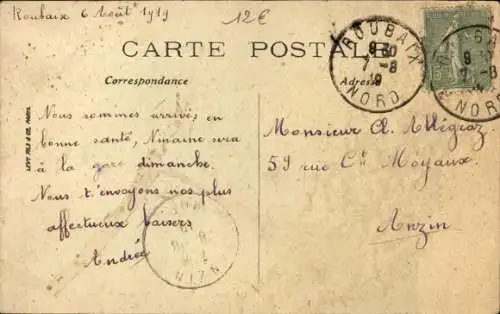 Roubaix 6 Août 1919
12€
CARTE POSTALE
Correspondance
Adresse
ROUBAIX
9 30
7 - 8
19
NORD
9 30
7 - 8
NORD
Nous sommes arrivés en
bonne santé, sera
à la gare dimanche.
Nous t'envoyons nos plus
affectueux baisers
Andrée
Monsieur A.
59 rue Ch Moyaux
Anzin
ANZIN